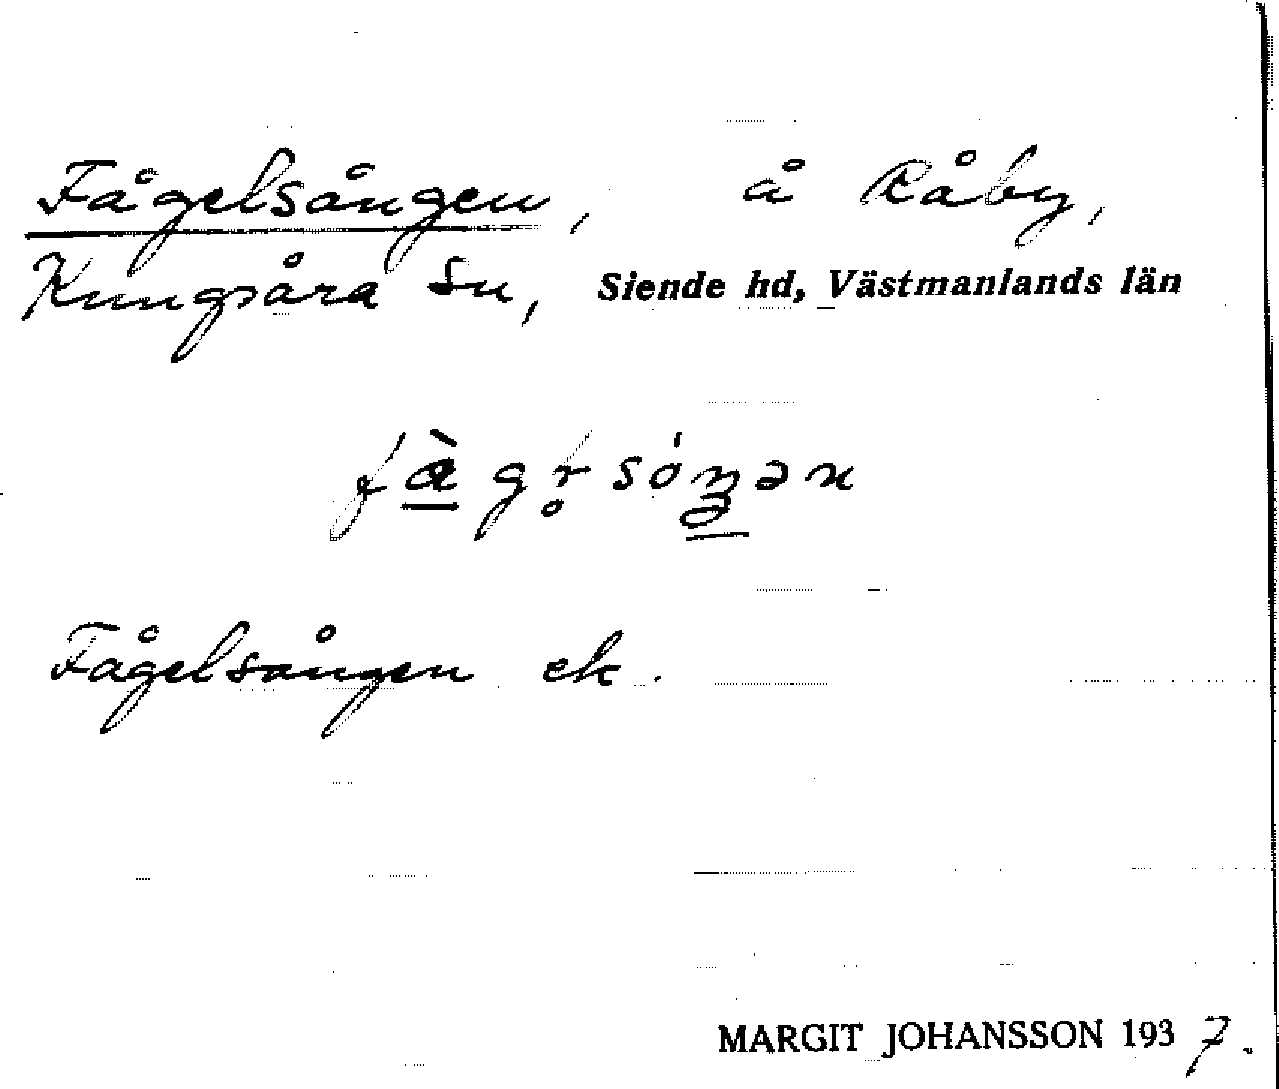 Fågelsången, å Råby,
Kungsåra sn, Siende hd, Västmanlands län
Fågelsången ek.
MARGIT JOHANSSON 1937.